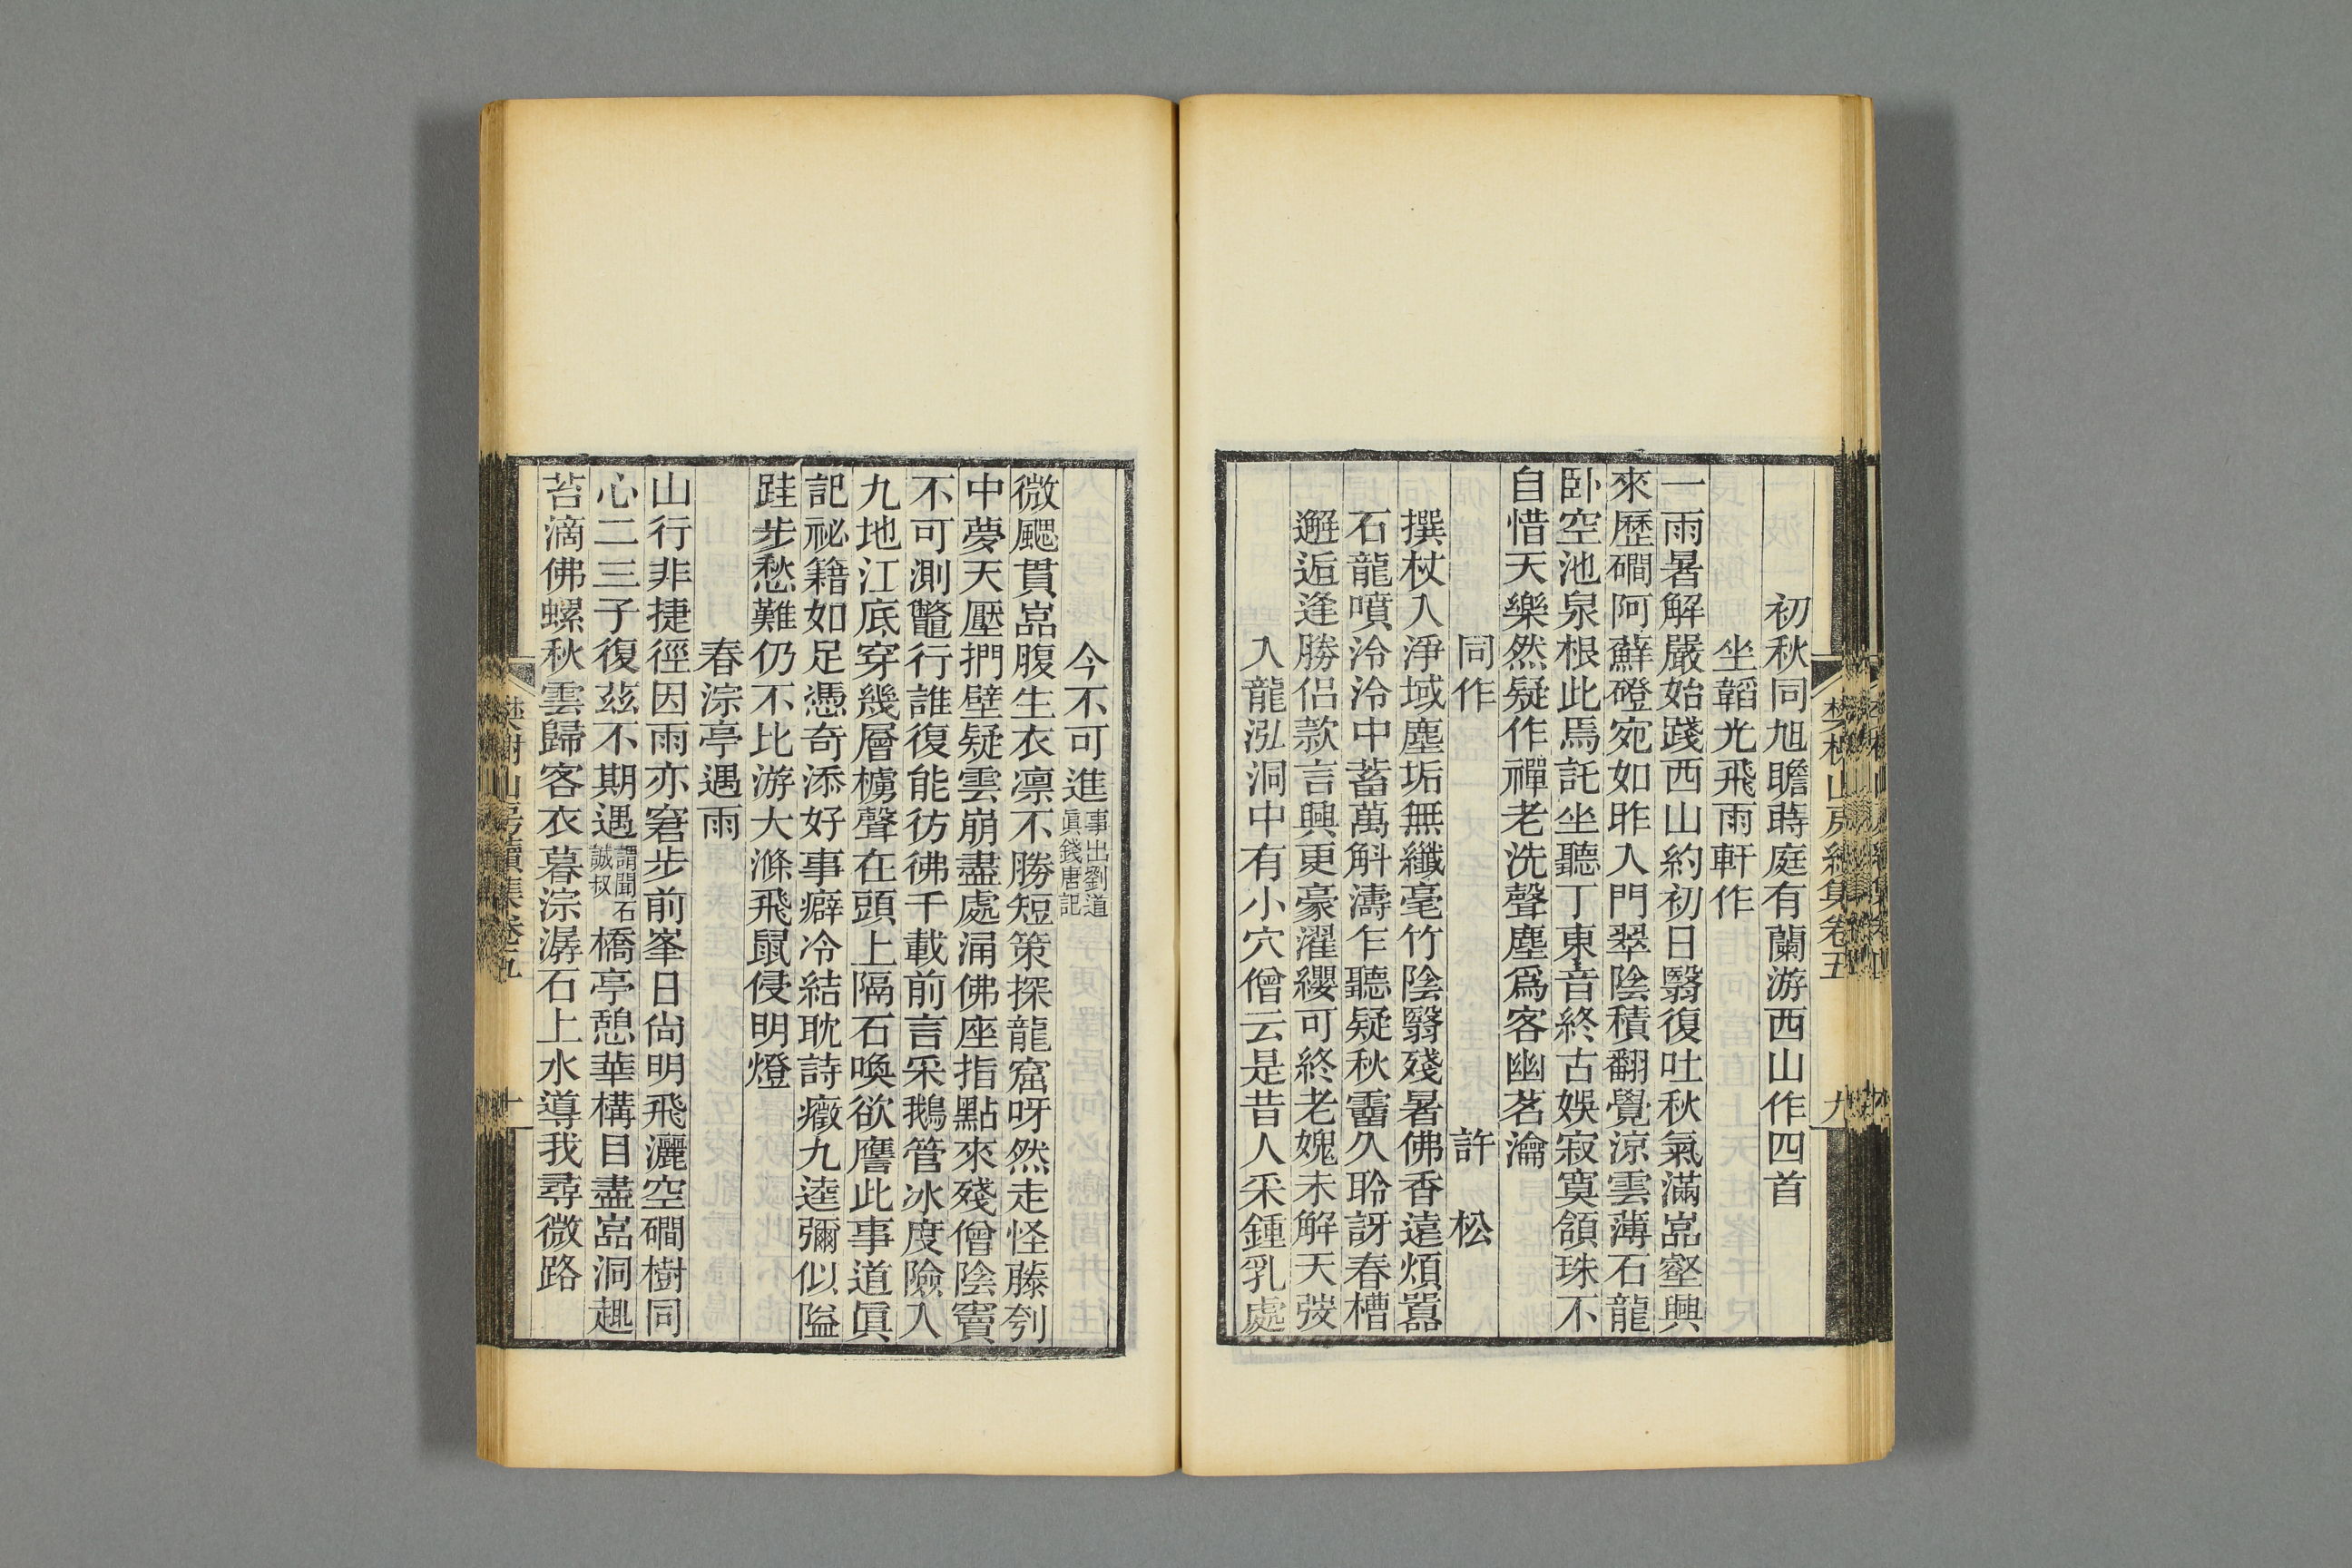 初秋同旭瞻蒔庭有蘭游西山作四首
坐韜光飛雨軒作
一雨暑解嚴始踐西山約初日翳復吐秋氣滿嵓壑興
來歷磵阿蘚磴宛如昨入門翠陰積翻覺涼雲薄石龍
卧空池泉根此焉託坐聽丁東音終古娛寂寞頷珠不
自惜天樂然疑作禪老洗聲塵爲客幽茗瀹
同作 許松
撰杖入淨域塵垢無纖毫竹陰翳殘暑佛香遠煩囂
石龍噴泠泠中蓄萬斛濤乍聽疑秋霤久聆訝春槽
邂逅逢勝侶款言興更豪濯纓可終老媿未解天弢
入龍泓洞中有小穴僧云是昔人采鍾乳處
今不可進事出劉道
眞錢唐記
微颸貫嵓腹生衣凛不勝短策探龍窟呀然走怪藤刳
中夢天壓捫壁疑雲崩盡處涌佛座指點來殘僧陰竇
不可測鼈行誰復能彷彿千載前言采鵝管冰度險入
九地江底穿幾層櫓聲在頭上隔石喚欲譍此事道眞
記祕籍如足憑奇添好事癖冷結耽詩癥九逵彌似隘
跬步愁難仍不比游大滌飛鼠侵明燈
春淙亭遇雨
山行非捷徑因雨亦窘步前峯日尙明飛灑空磵樹同
心二三子復茲不期遇謂聞石
誠叔橋亭憩華構目盡嵓洞趣
苔滴佛螺秋雲歸客衣暮淙潺石上水導我尋微路
樊榭山房續集卷五
九
樊榭山房續集卷五
十